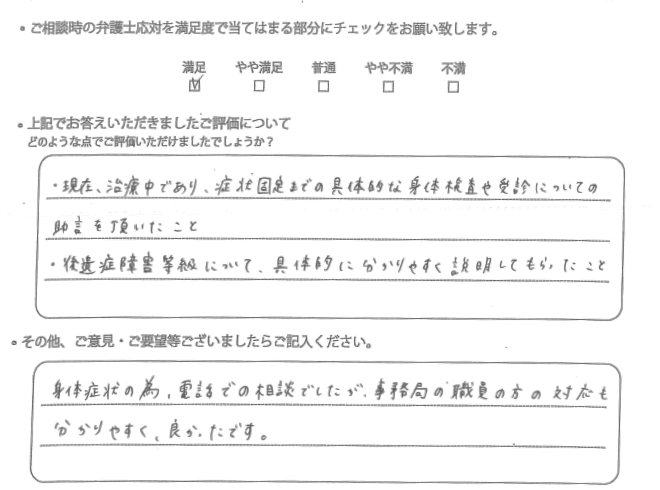 • ご相談時の弁護士応対を満足度で当てはまる部分にチェックをお願い致します。
満足 やや満足 普通 やや不満 不満
☑ □ □ □ □
• 上記でお答えいただきましたご評価について
どのような点でご評価いただけましたでしょうか？
・現在、治療中であり、症状固定までの具体的な身体検査や受診についての
助言を頂いたこと
・後遺症障害等級について、具体的に分かりやすく説明してもらったこと
• その他、ご意見・ご要望等ございましたらご記入ください。
身体症状の為、電話での相談でしたが、事務局の職員の方の対応も
分かりやすく、良かったです。